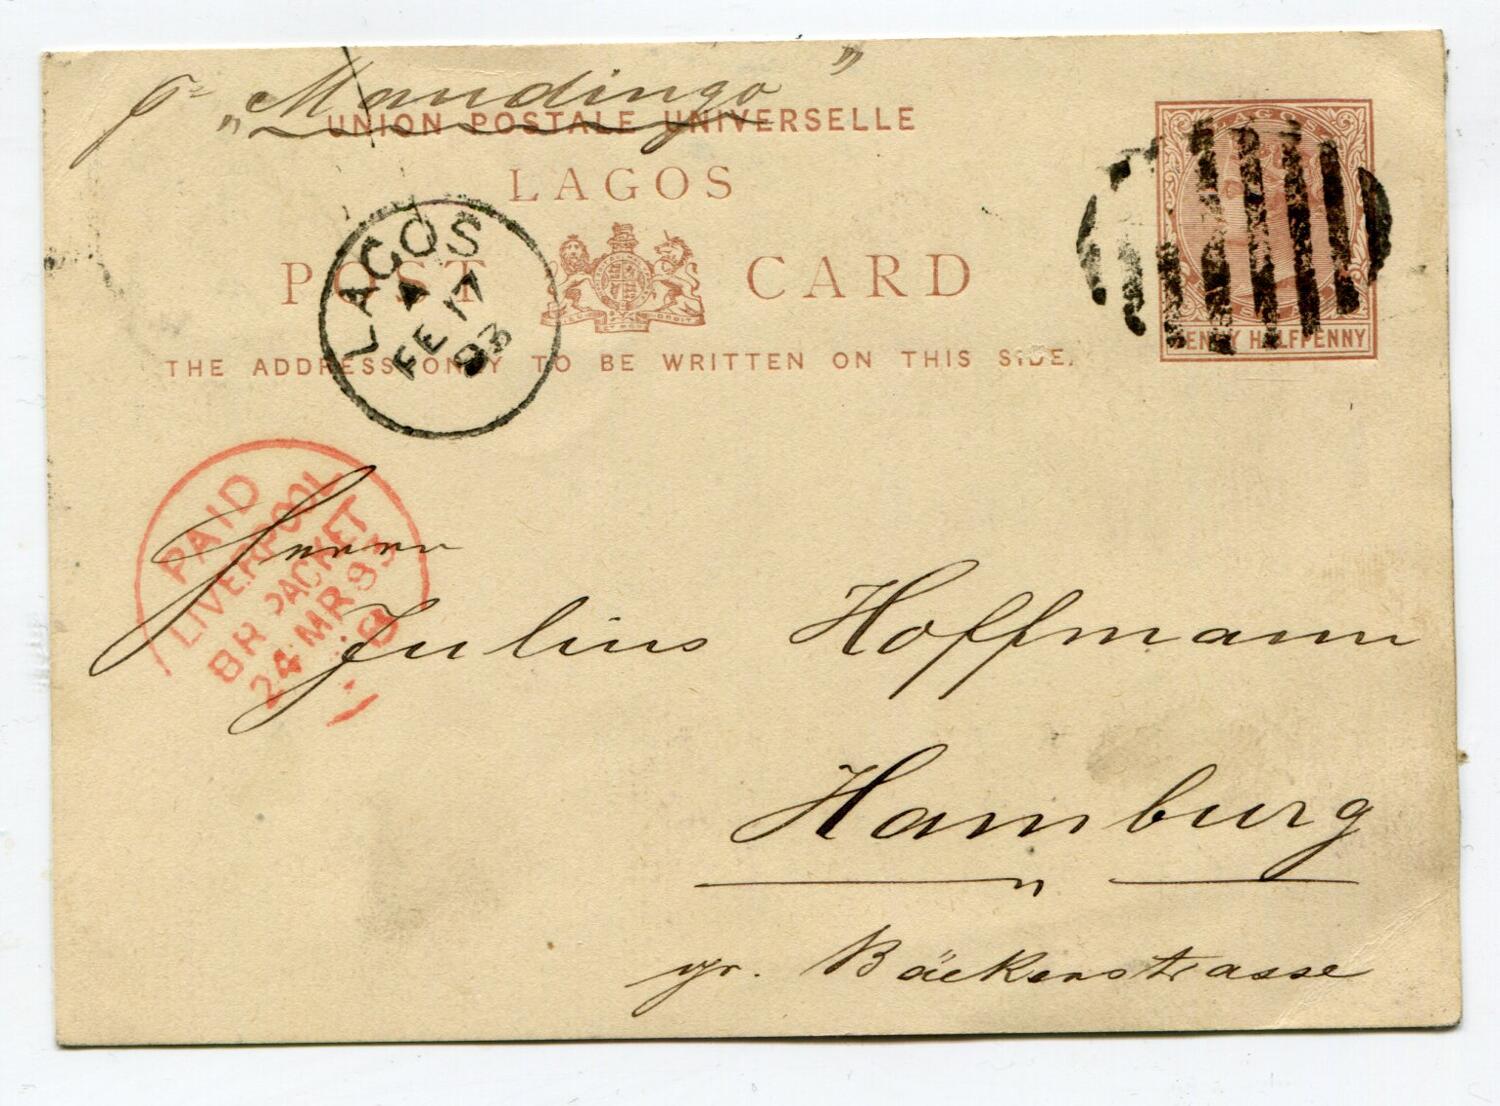 pr „Mandingo”
UNION POSTALE UNIVERSELLE
LAGOS
POST CARD
THE ADDRESS ONLY TO BE WRITTEN ON THIS SIDE.
LAGOS
PENNY HALFPENNY
LAGOS
A
FE 17
93
PAID
LIVERPOOL
BR PACKET
24 MR 93
Herrn
Julius Hoffmann
Hamburg
gr. Bäckerstrasse